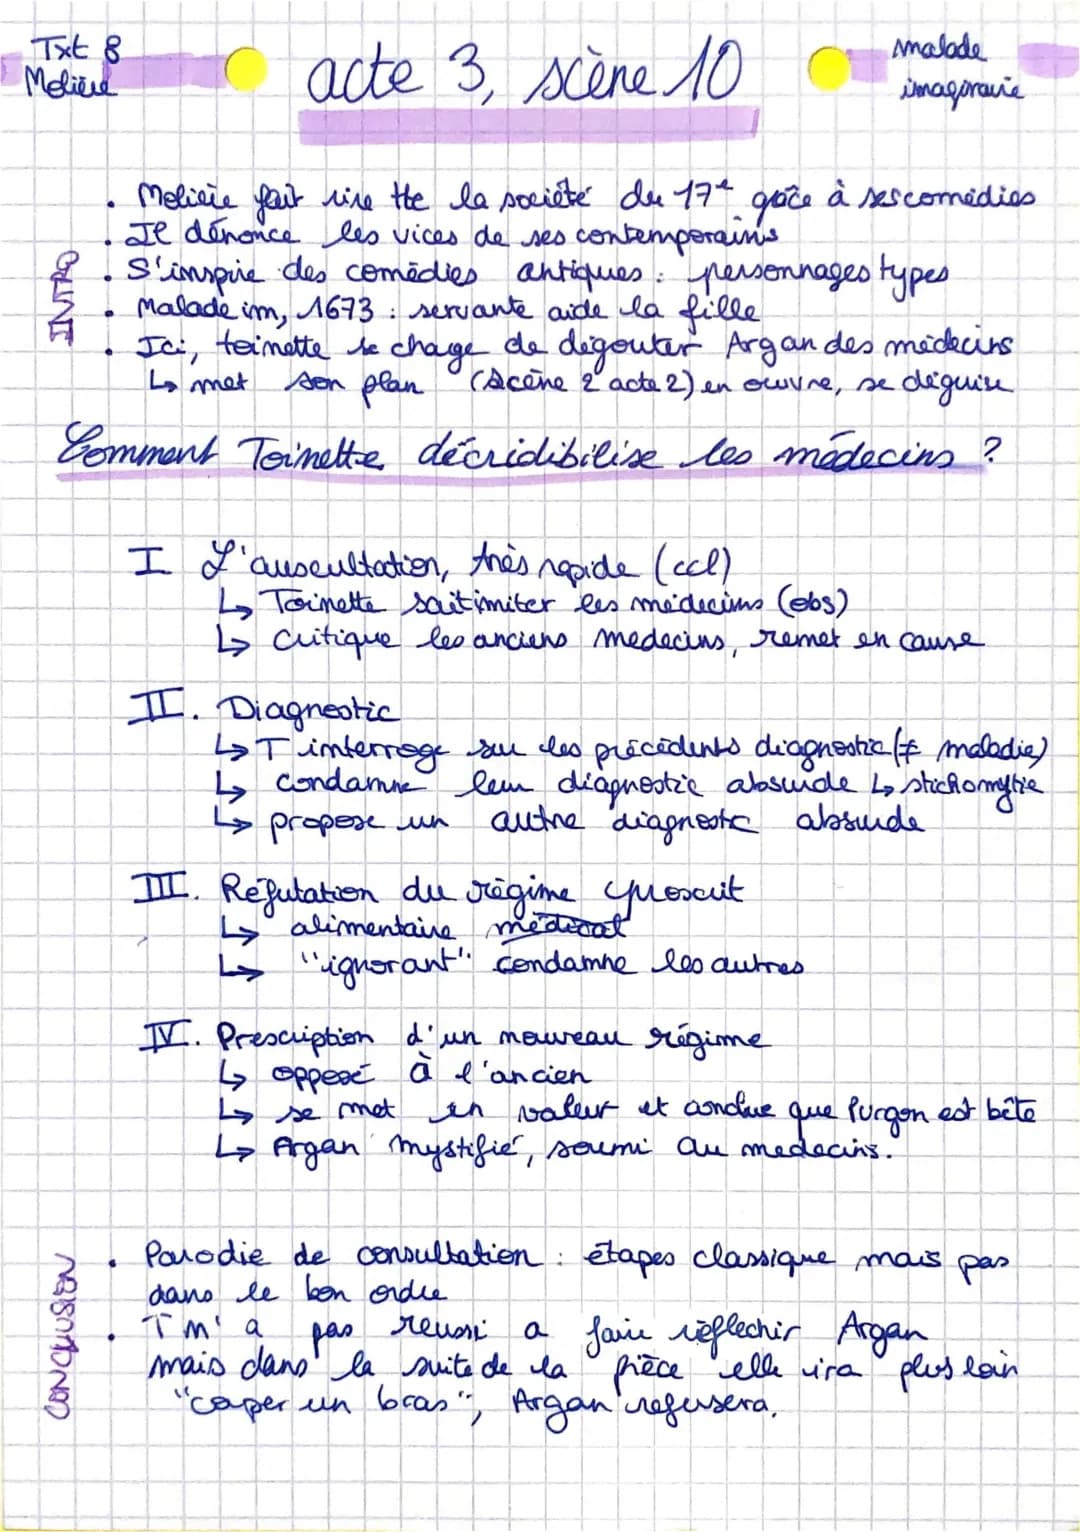 Txt 8
Molière
acte 3, scène 10
malade
imaginaire
INTRO
• Molière fait rire tte la société du 17e grâce à ses comédies
• Il dénonce les vices de ses contemporains
• S'inspire des comédies antiques : personnages types
• Malade im, 1673 : servante aide la fille
• Ici, toinette se chage de dégouter Argan des médecins
↳ met son plan (scène 2 acte 2) en œuvre, se déguise
Comment Toinette décridibilise les médecins ?
I L'auscultation, très rapide (ccl)
↳ Toinette sait imiter les médecins (obs)
↳ critique les anciens medecins, remet en cause
II. Diagnostic
↳ T interroge sur les précédents diagnostic (≠ maladie)
↳ condamne leur diagnostic absurde ↳ stichomytie
↳ propose un autre diagnostc absurde
III. Réfutation du régime proscrit
↳ alimentaire médical
↳ "ignorant" : condamne les autres
IV. Prescription d'un nouveau régime
↳ opposé à l'ancien
↳ se met en valeur et conclue que Purgon est bête
↳ Argan mystifié, soumi au medecins.
CONCLUSION
• Parodie de consultation : étapes classique mais pas
dans le bon ordre
• T m'a pas reussi a faire réflechir Argan
mais dans la suite de la pièce elle ira plus loin
"couper un bras", Argan refusera.